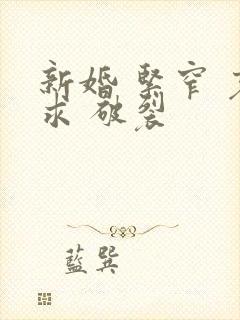 新婚 緊窄
求 破裂
藍巽